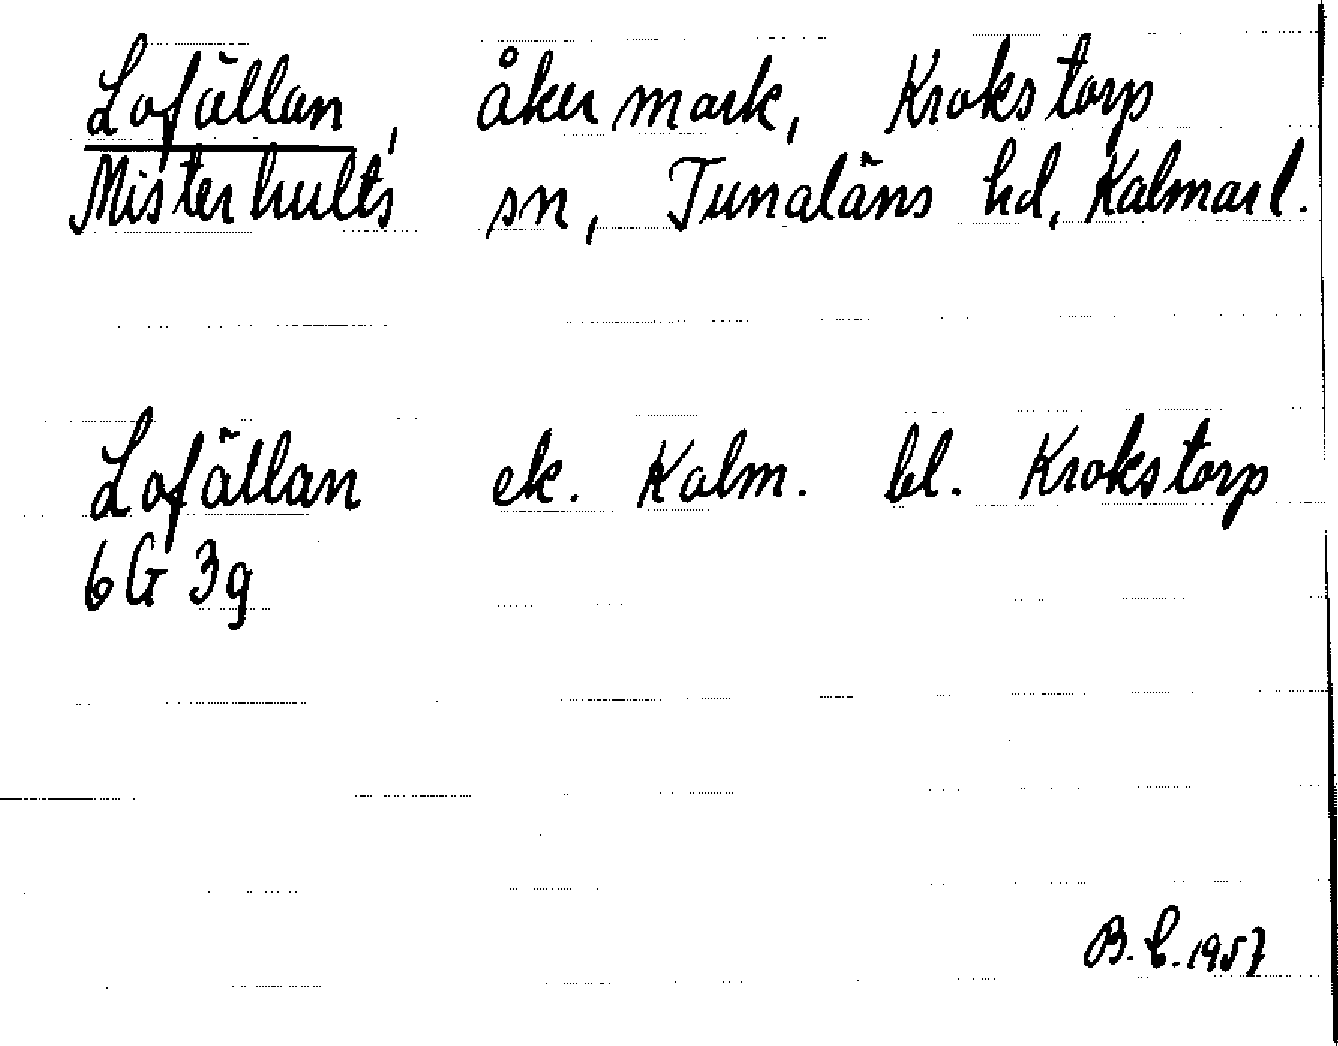 Lofällan, åkermark, Krokstorp
Misterhults sn, Tunaläns hd, Kalmar l.
Lofällan ek. Kalm. bl. Krokstorp
6G 3g
B. C. 1957